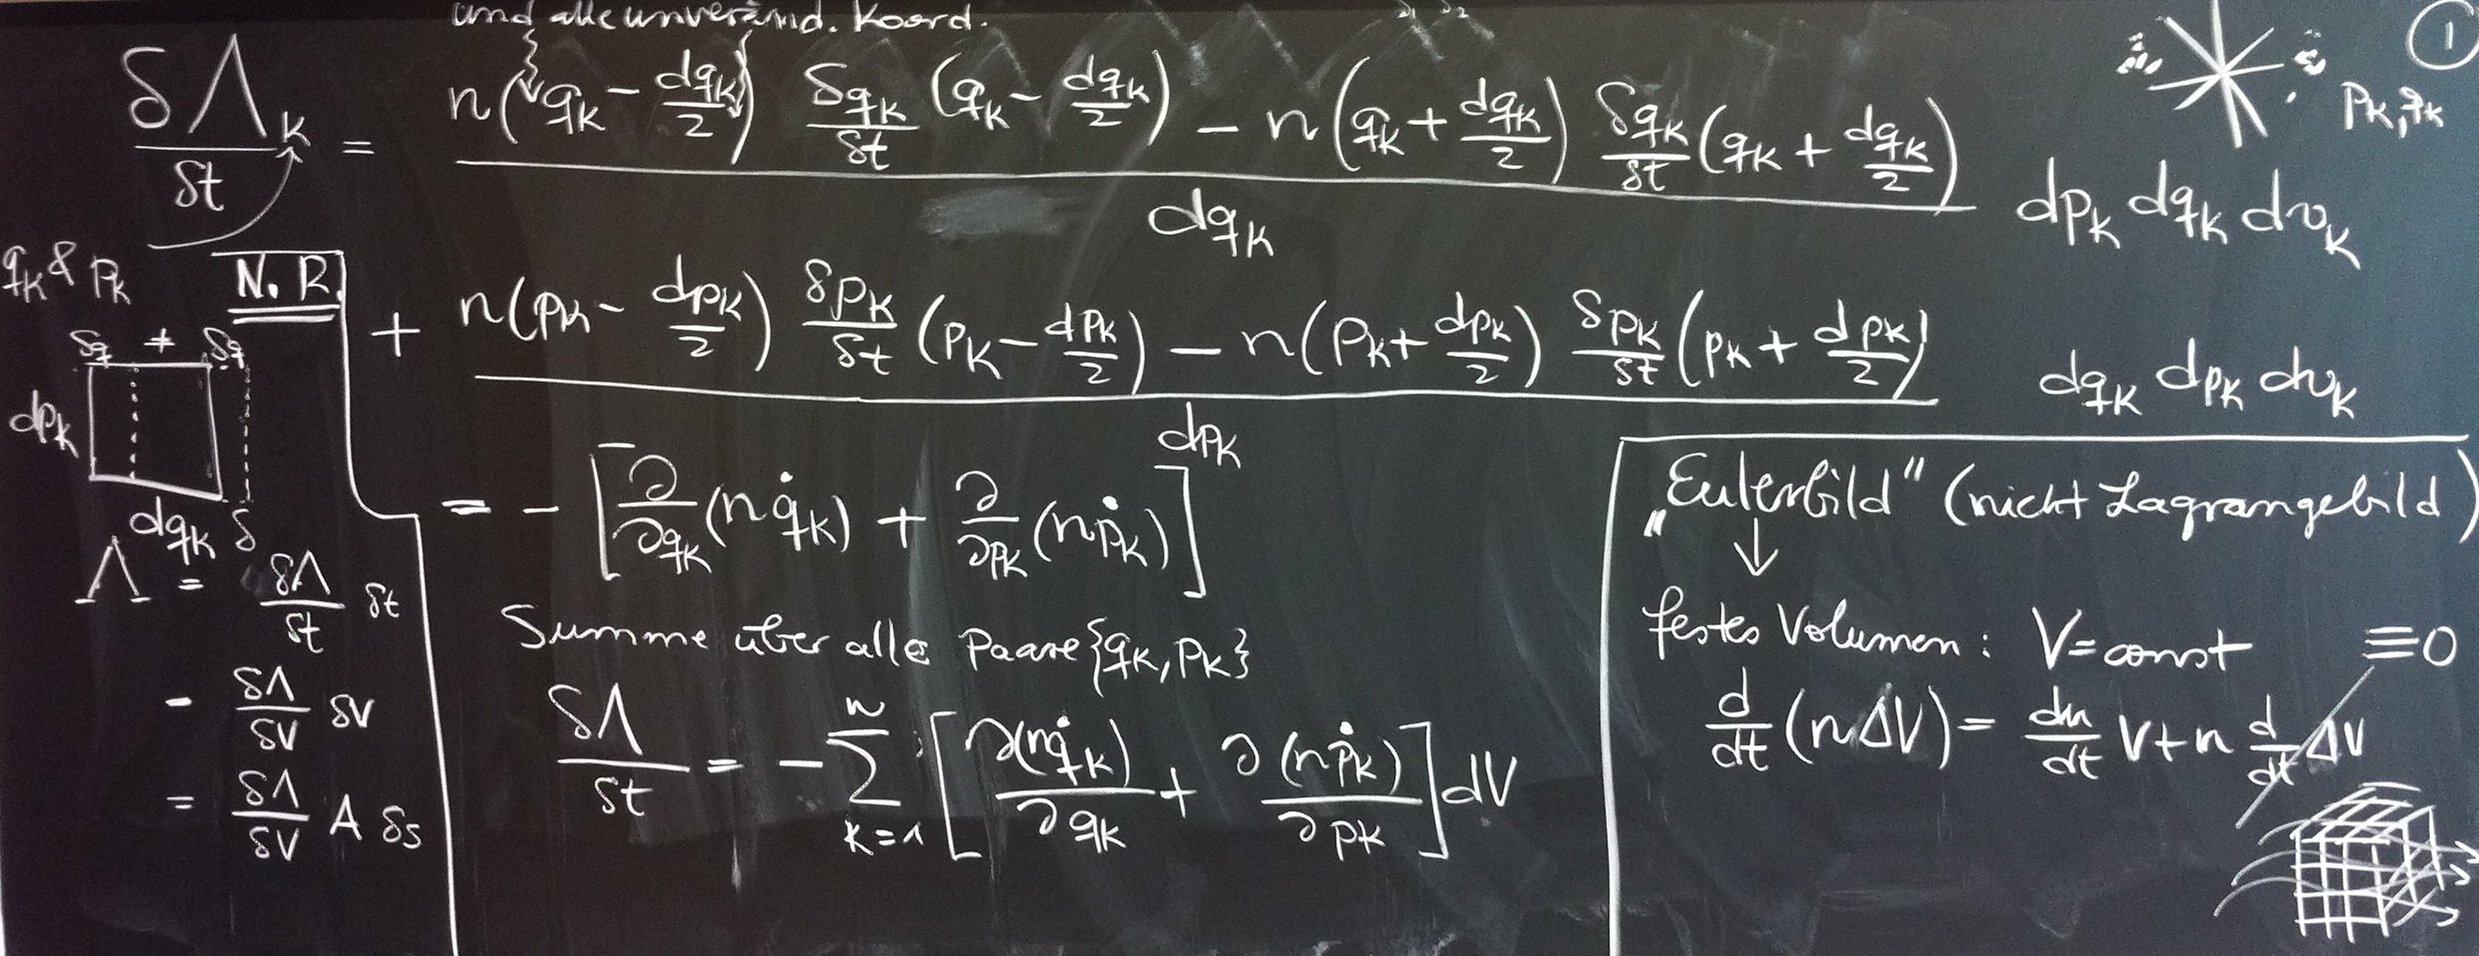 und alle unveränd. Koord.
①
δΛ_K/δt = [n(q_K − dq_K/2) δq_K/δt (q_K − dq_K/2) − n(q_K + dq_K/2) δq_K/δt (q_K + dq_K/2)] / dq_K   dp_K dq_K dv_K
p_K, q_K
q_K & p_K
N.R.
+ [n(p_K − dp_K/2) δp_K/δt (p_K − dp_K/2) − n(p_K + dp_K/2) δp_K/δt (p_K + dp_K/2)] / dp_K   dq_K dp_K dv_K
δq + δq
dp_K
dq_K δ
Λ = δΛ/δt δt
- δΛ/δV δV
= δΛ/δV A δs
= − [∂/∂q_K (n q̇_K) + ∂/∂p_K (n ṗ_K)]
Summe über alle Paare {q_K, p_K}
δΛ/δt = − Σ_{K=1}^{n} [∂(n q̇_K)/∂q_K + ∂(n ṗ_K)/∂p_K] dV
„Eulerbild“ (nicht Lagrangebild)
↓
festes Volumen: V = const
≡ 0
d/dt (n ΔV) = dn/dt V + n d/dt ΔV